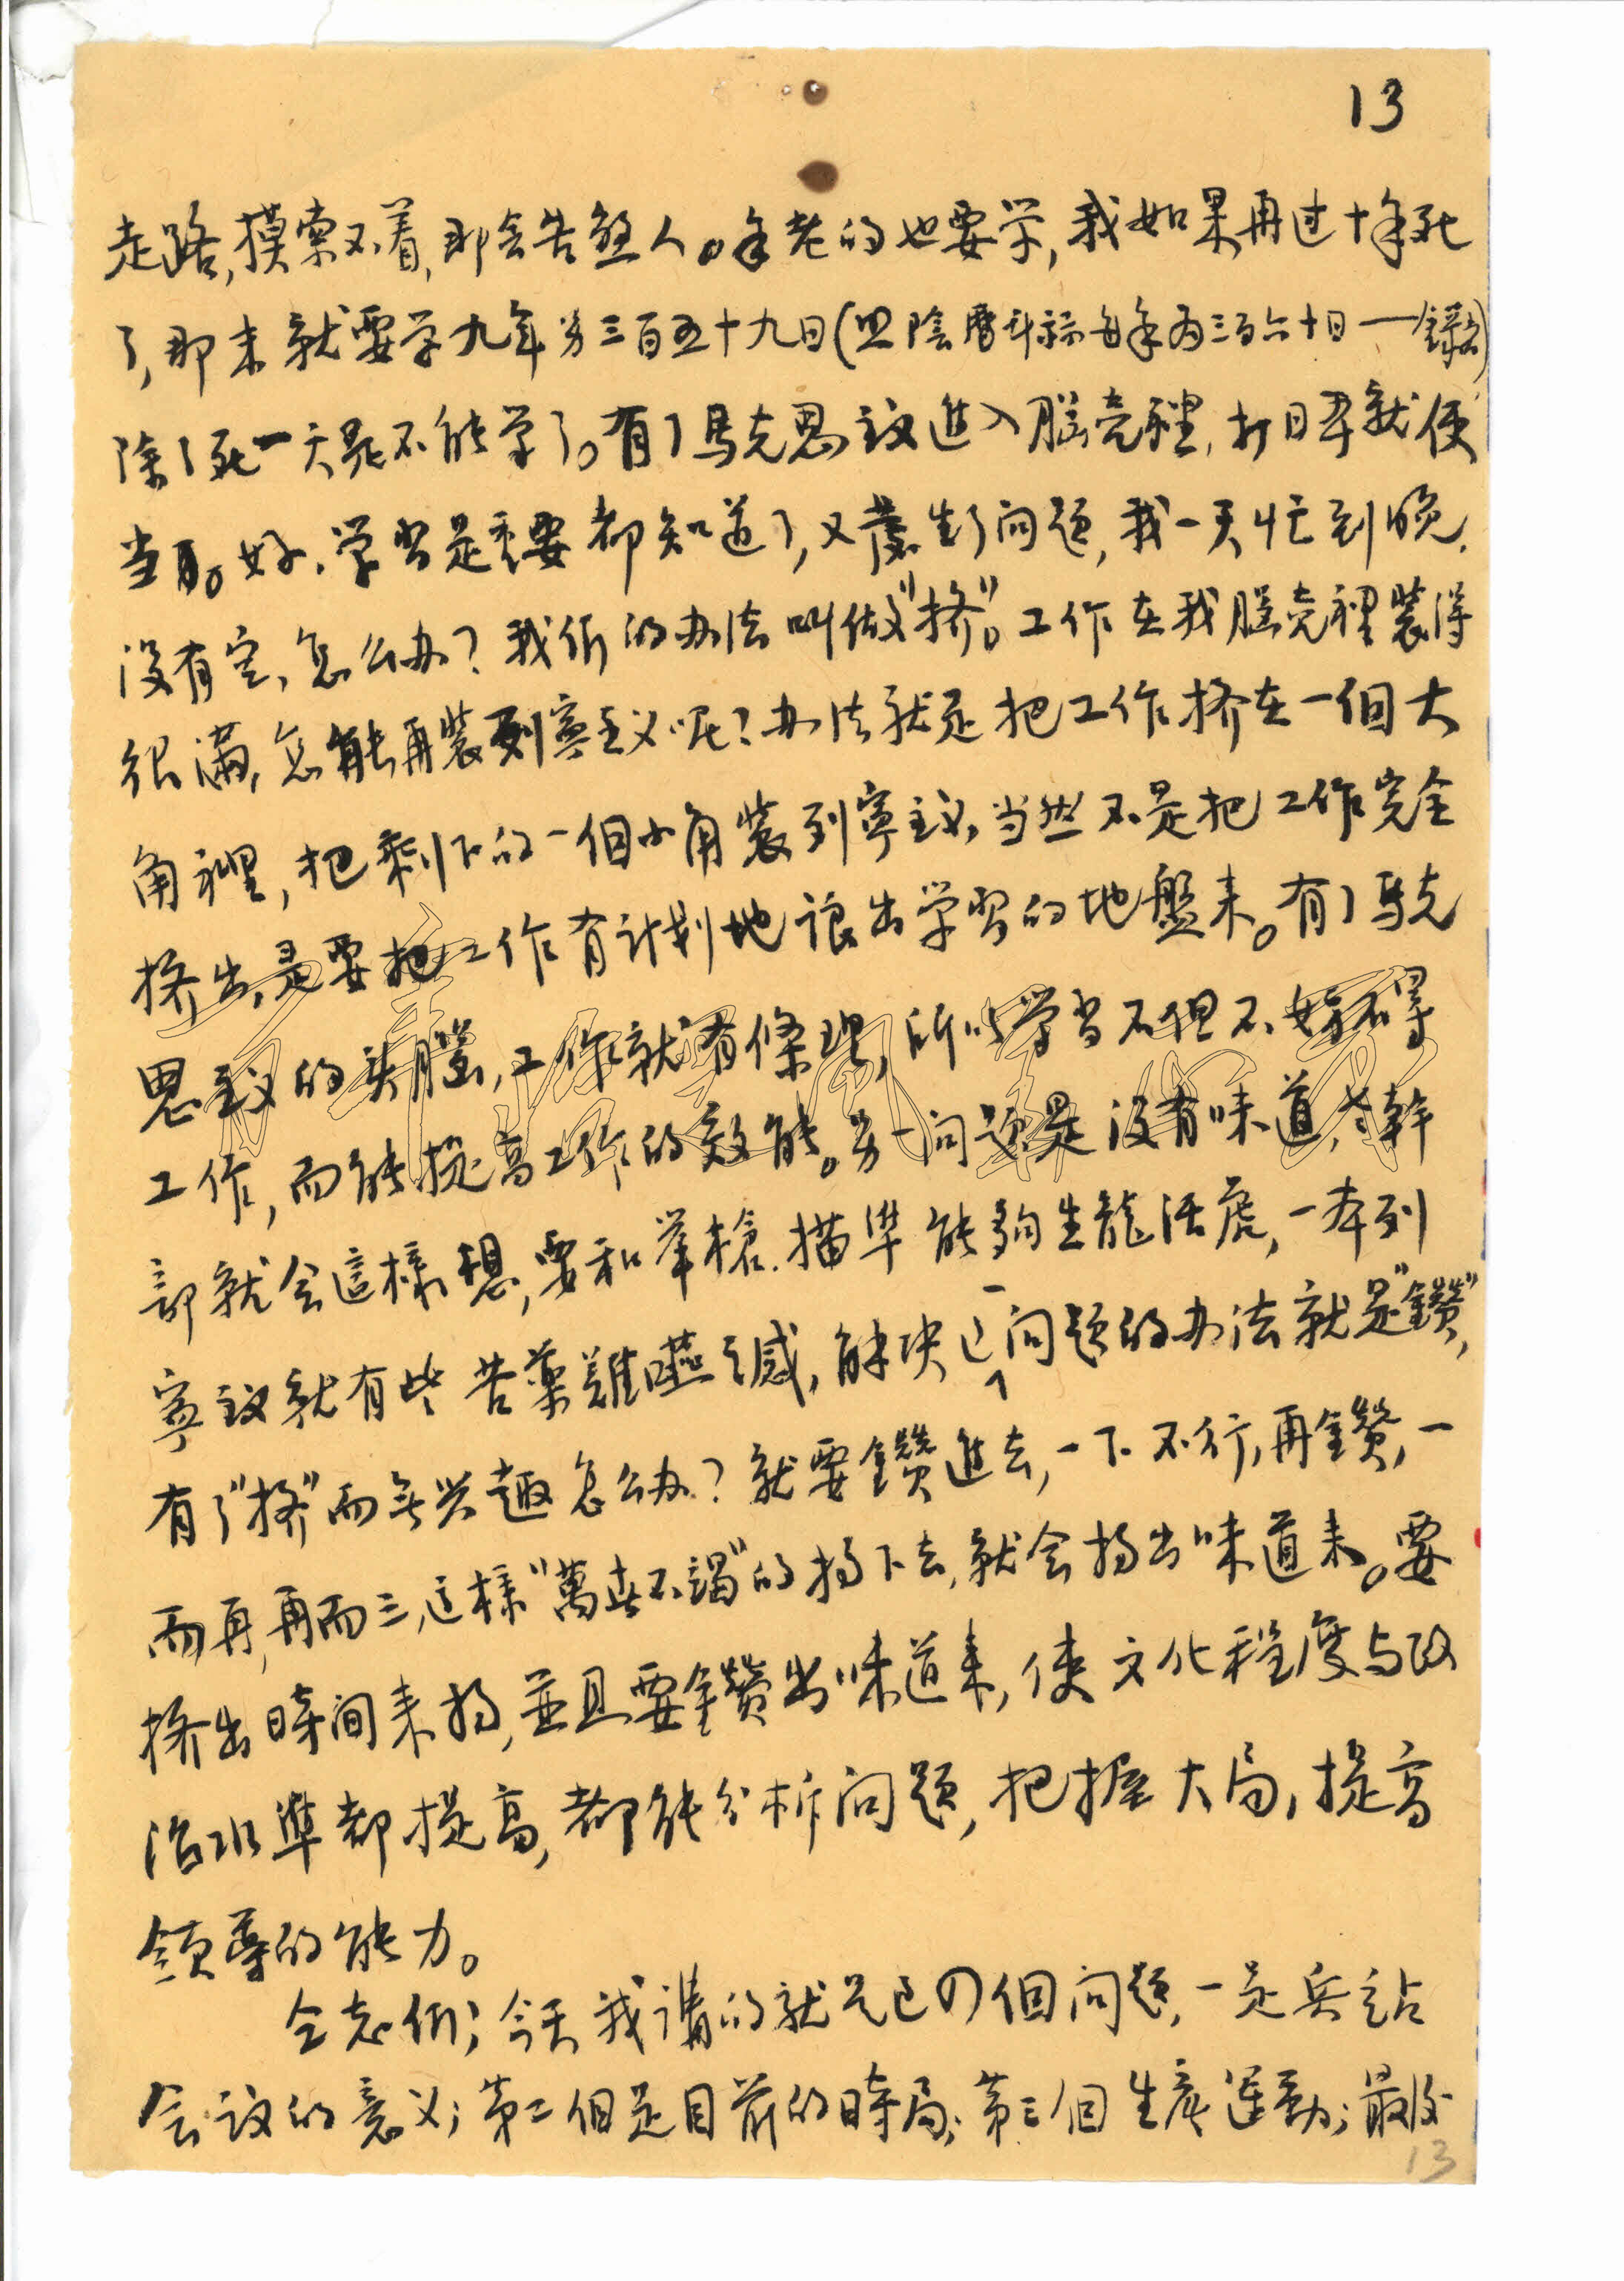 13
走路,摸索不着,那会苦煞人。年老的也要学,我如果再过十年死
了,那末就要学九年另三百五十九日(照陰曆計算每年为三百六十日——錄者)
除了死一天是不能学了。有了馬克思主义進入腦壳裡,打日本就便
当了。好、学習是需要都知道了,又發生了问题,我一天忙到晚、
没有空、怎么办?我们的办法叫做"挤"。工作在我腦壳裡装得
很满,怎能再装列寧主义呢?办法就是把工作挤在一個大
角裡,把剩下的一個小角装列寧主义,当然不是把工作完全
挤出,是要把工作有计划地讓出学習的地盤来。有了馬克
思主义的头腦,工作就有條理,所以学習不但不妨碍
工作,而能提高工作的效能。另一问题是没有味道,老幹
部就会這樣想,要和举槍、描準能够生龍活虎,一本列
寧主义就有些苦藥難嚥之感,解决这一问题的办法就是"鑽",
有了"挤"而无兴趣怎么办?就要鑽進去,一下不行,再鑽,一
而再,再而三,这樣"萬世不竭"的搞下去,就会搞出味道来。要
挤出時间来搞,並且要鑽出味道来,使文化程度与政
治水準都提高,都能分析问题,把握大局,提高
領导的能力。
仝志们;今天我講的就是这四個问题,一是兵站
会议的意义;第二個是目前的時局;第三個生産運動;最后
13